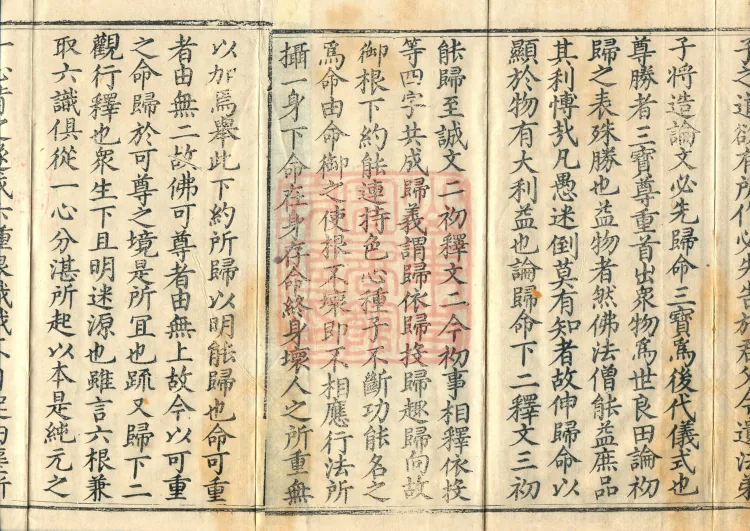 子將造論文必先歸命三寶爲後代儀式也
尊勝者三寶尊重首出衆物爲世良田論初
歸之表殊勝也益物者然佛法僧能益庶品
其利博哉凡愚迷倒莫有知者故伸歸命以
顯於物有大利益也論歸命下二釋文三初
能歸至誠文二初釋文二今初事相釋依投
等四字共成歸義謂歸依歸投歸趣歸向故
御根下約能連持色心種子不斷功能名之
爲命由命御之使根不壞即不相應行法所
攝一身下命在身存命終身壞人之所重無
以加焉舉此下約所歸以明能歸也命可重
者由無二故佛可尊者由無上故今以可重
之命歸於可尊之境是所宜也䟽又歸下二
觀行釋也衆生下且明迷源也雖言六根兼
取六識俱從一心分湛所起以本是純元之